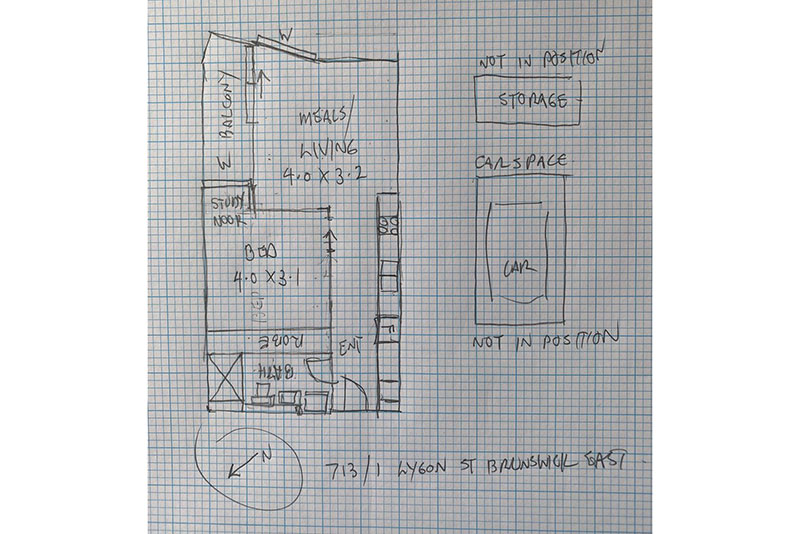 W
NOT IN POSITION
STORAGE
W BALCONY
MEALS/
LIVING
4.0 X 3.2
CAR SPACE
STUDY
NOOK
BED
4.0 X 3.1
BED
CAR
ROBE
ENT
F
NOT IN POSITION
BATH
N
713/1 LYGON ST BRUNSWICK EAST